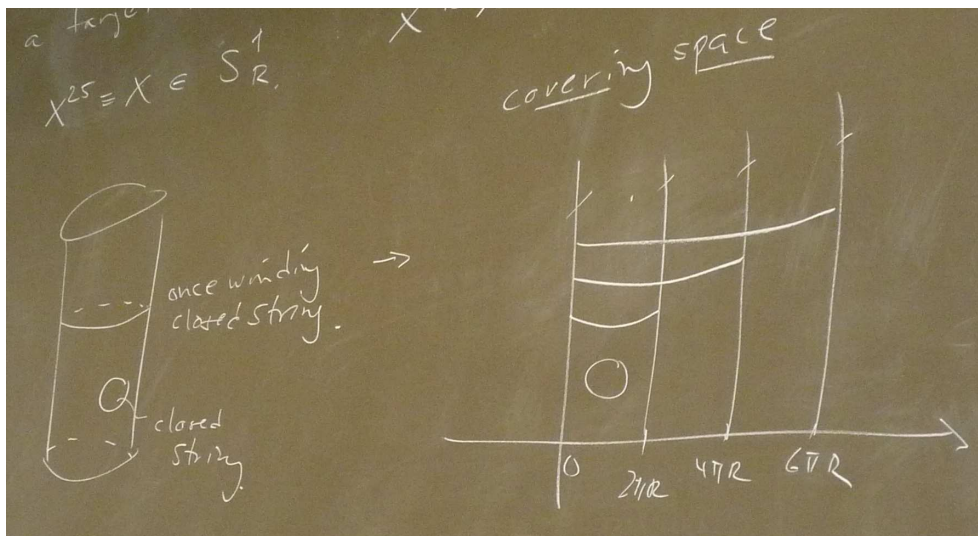 a targe
X
X²⁵ ≡ X ∈ S¹_R.
covering space
once winding
closed string.
→
closed
string.
0
2πR
4πR
6πR